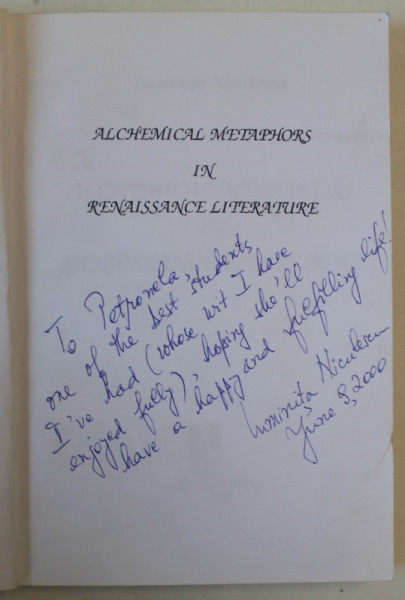 ALCHEMICAL METAPHORS
IN
RENAISSANCE LITERATURE
To Petronela,
one of the best students
I've had (whose wit I have
enjoyed fully), hoping she'll
have a happy and fulfilling life!
Luminita Niculescu
June 8, 2000